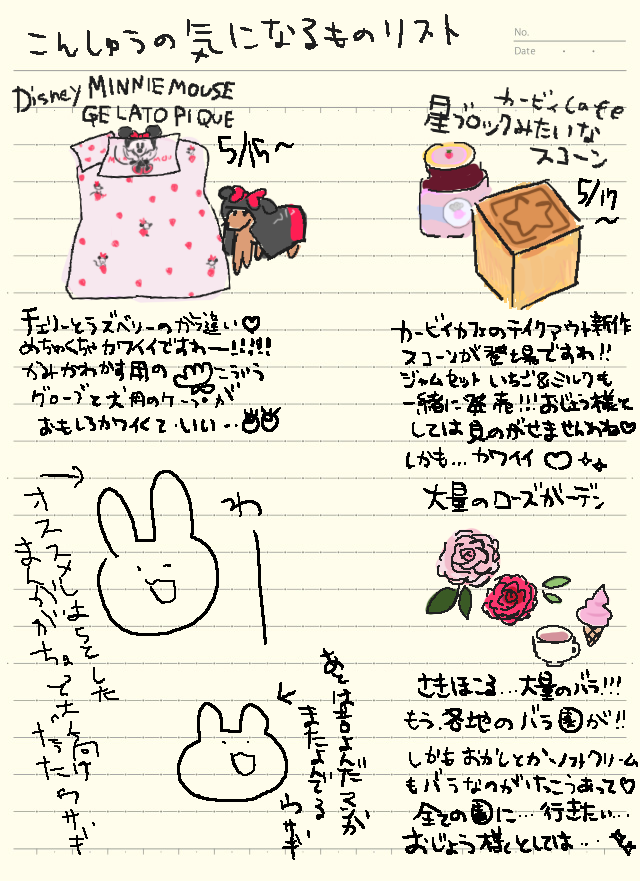 No.
Date
こんしゅうの気になるものリスト
Disney MINNIE MOUSE
GELATO PIQUE
5/15〜
チェリーとラズベリーのがら違い♡
めちゃくちゃカワイイですわー!!!!!
かみかわかす用の
グローブと犬用のケープが
おもしろカワイくていい…
カービィCafe
星ブロックみたいな
スコーン
5/17
〜
カービィカフェのテイクアウト新作
スコーンが登場ですわ!!
ジャムセット いちご&ミルクも
一緒に発売!!!おじょう様と
しては見のがせませんわね♡
しかも…カワイイ♡
大量のローズガーデン
さきほこる…大量のバラ!!!
もう、各地のバラ園が!!
しかもおかしとかソフトクリーム
もバラなのがけっこうあって♡
全ての園に…行きたい…
おじょう様としては…
わー
→
オススメしてもらった
まんががちょっと大人向け
だったウサギ
あとは昔よんだマンガ
またよんでる
ウサギ